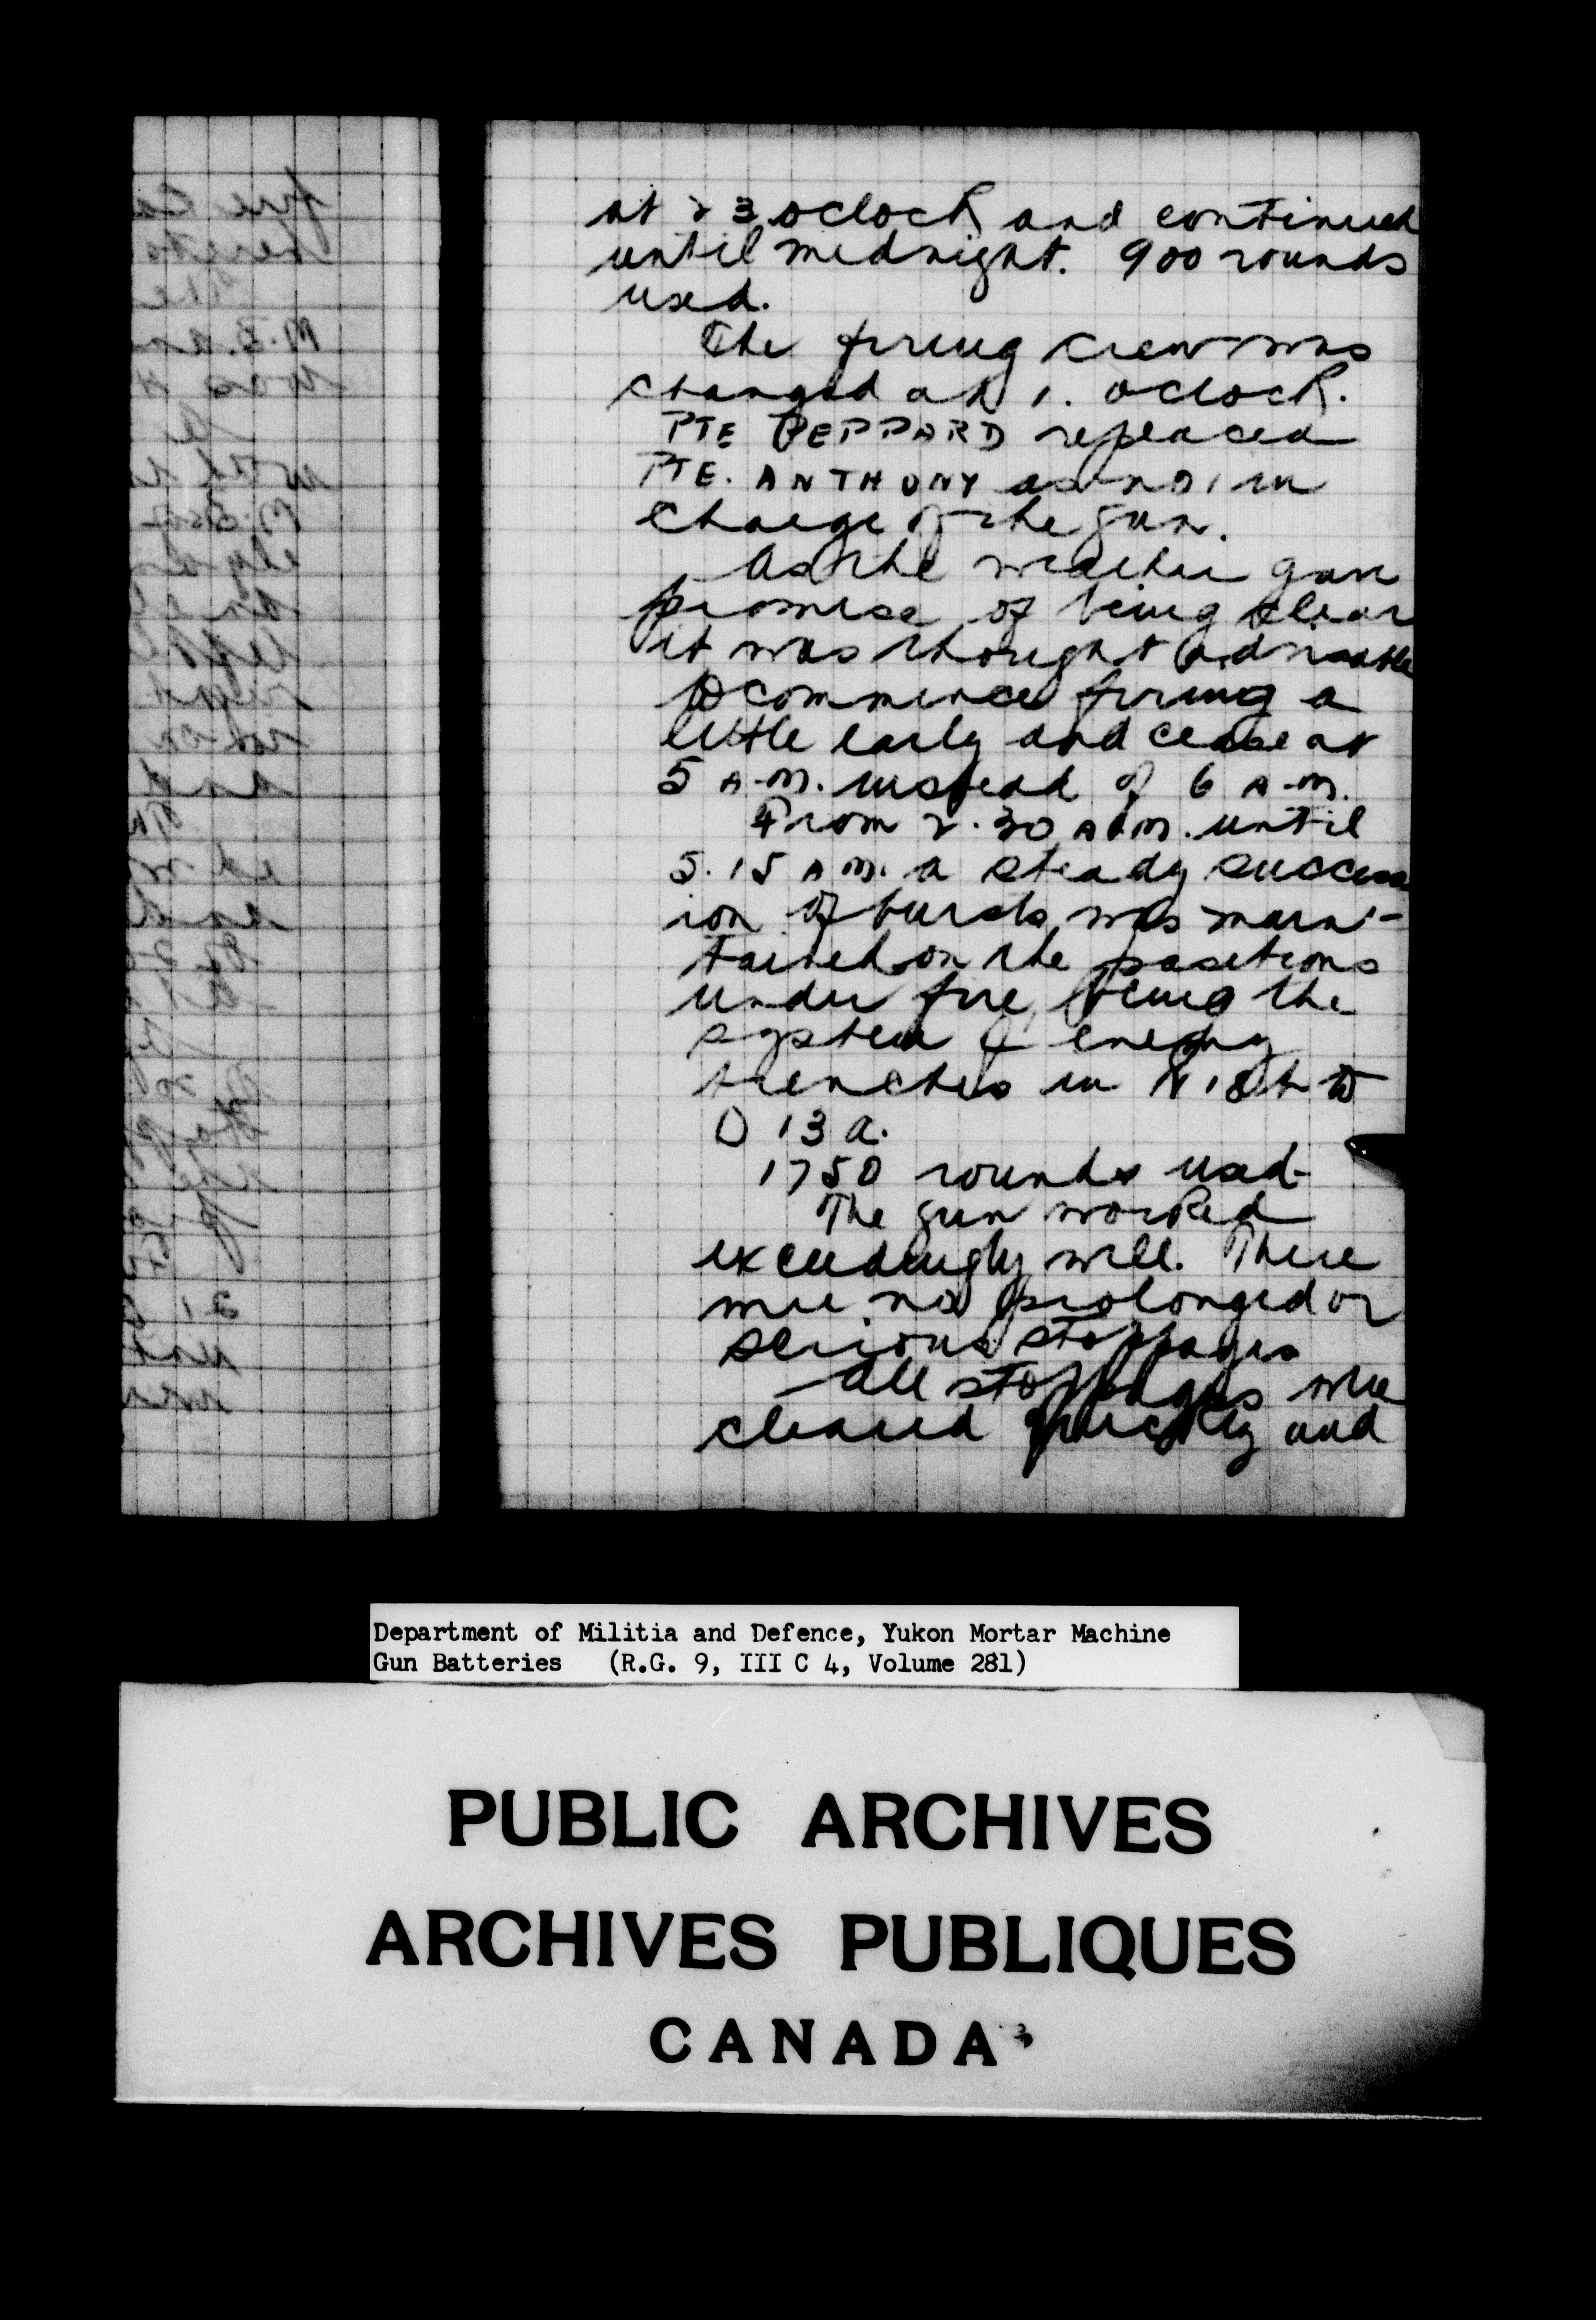 at 23 oclock and continued
until midnight. 900 rounds
used.
The firing crew was
changed at 1. oclock.
PTE PEPPARD replaced
PTE. ANTHONY as no 1 in
charge of the gun.
As the weather gave
promise of being clear
it was thought advisable
to commence firing a
little early and cease at
5 A.M. instead of 6 A.M.
From 2.30 A.M. until
5.15 A.M. a steady success
ion of bursts was main-
tained on the positions
under fire, being the
system of enemy
trenches in N 18 b to
O 13 a.
1750 rounds used.
The gun worked
exceedingly well. There
were no prolonged or
serious stoppages
All stoppages were
cleared quickly and
Department of Militia and Defence, Yukon Mortar Machine
Gun Batteries (R.G. 9, III C 4, Volume 281)
PUBLIC ARCHIVES
ARCHIVES PUBLIQUES
CANADA